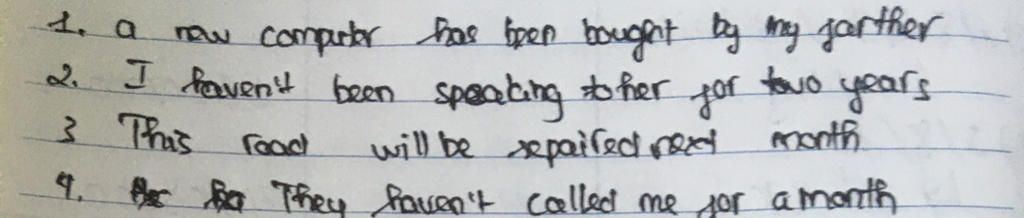 1. a new computer has been bought by my farther
2. I haven't been speaking to her for two years
3 This road will be repaired next month
4. They haven't called me for a month